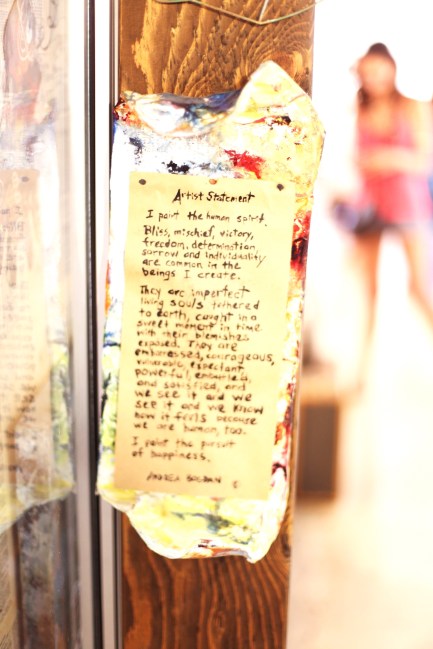 Artist Statement
I paint the human spirit.
Bliss, mischief, victory,
freedom, determination,
sorrow and individuality
are common in the
beings I create.
They are imperfect
living souls tethered
to Earth, caught in a
sweet moment in time
with their blemishes
exposed. They are
embarrassed, courageous,
vulnerable, expectant
powerful,
and satisfied, and
we see it and we
see it and we know
how it feels because
we are human, too.
I paint the pursuit
of happiness.
ANDREA BOGDAN